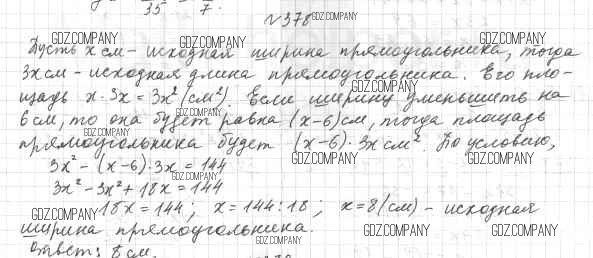 35 7.
№378 GDZ.COMPANY
GDZ.COMPANY GDZ.COMPANY GDZ.COMPANY
Пусть x см - исходная ширина прямоугольника, тогда
3x см - исходная длина прямоугольника. Его пло-
GDZ.COMPANY
щадь x·3x = 3x² (см²). Если ширину уменьшить на
6 см, то она будет равна (x-6) см, тогда площадь
GDZ.COMPANY
прямоугольника будет (x-6)·3x см². По условию,
GDZ.COMPANY GDZ.COMPANY
3x² - (x-6)·3x = 144
GDZ.COMPANY
3x² - 3x² + 18x = 144
GDZ.COMPANY 18x = 144; x = 144:18; x = 8 (см) - исходная
ширина прямоугольника.
GDZ.COMPANY GDZ.COMPANY GDZ.COMPANY
Ответ: 8 см.